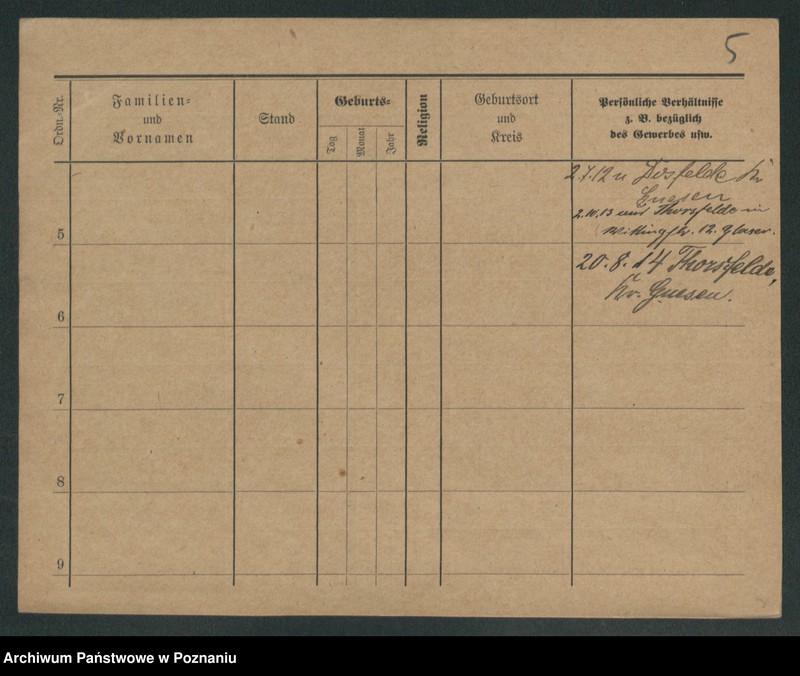 5
Ordn.-Nr.
Familien-
und
Vornamen
Stand
Geburts-
Tag
Monat
Jahr
Religion
Geburtsort
und
Kreis
Persönliche Verhältnisse
z. B. bezüglich
des Gewerbes usw.
2.7.12 n Kr
Gnesen
2.10.13 Thorsfelde in
12. Glaser.
5
20.8.14 Thorsfelde,
Kr. Gnesen.
6
7
8
9
Archiwum Państwowe w Poznaniu